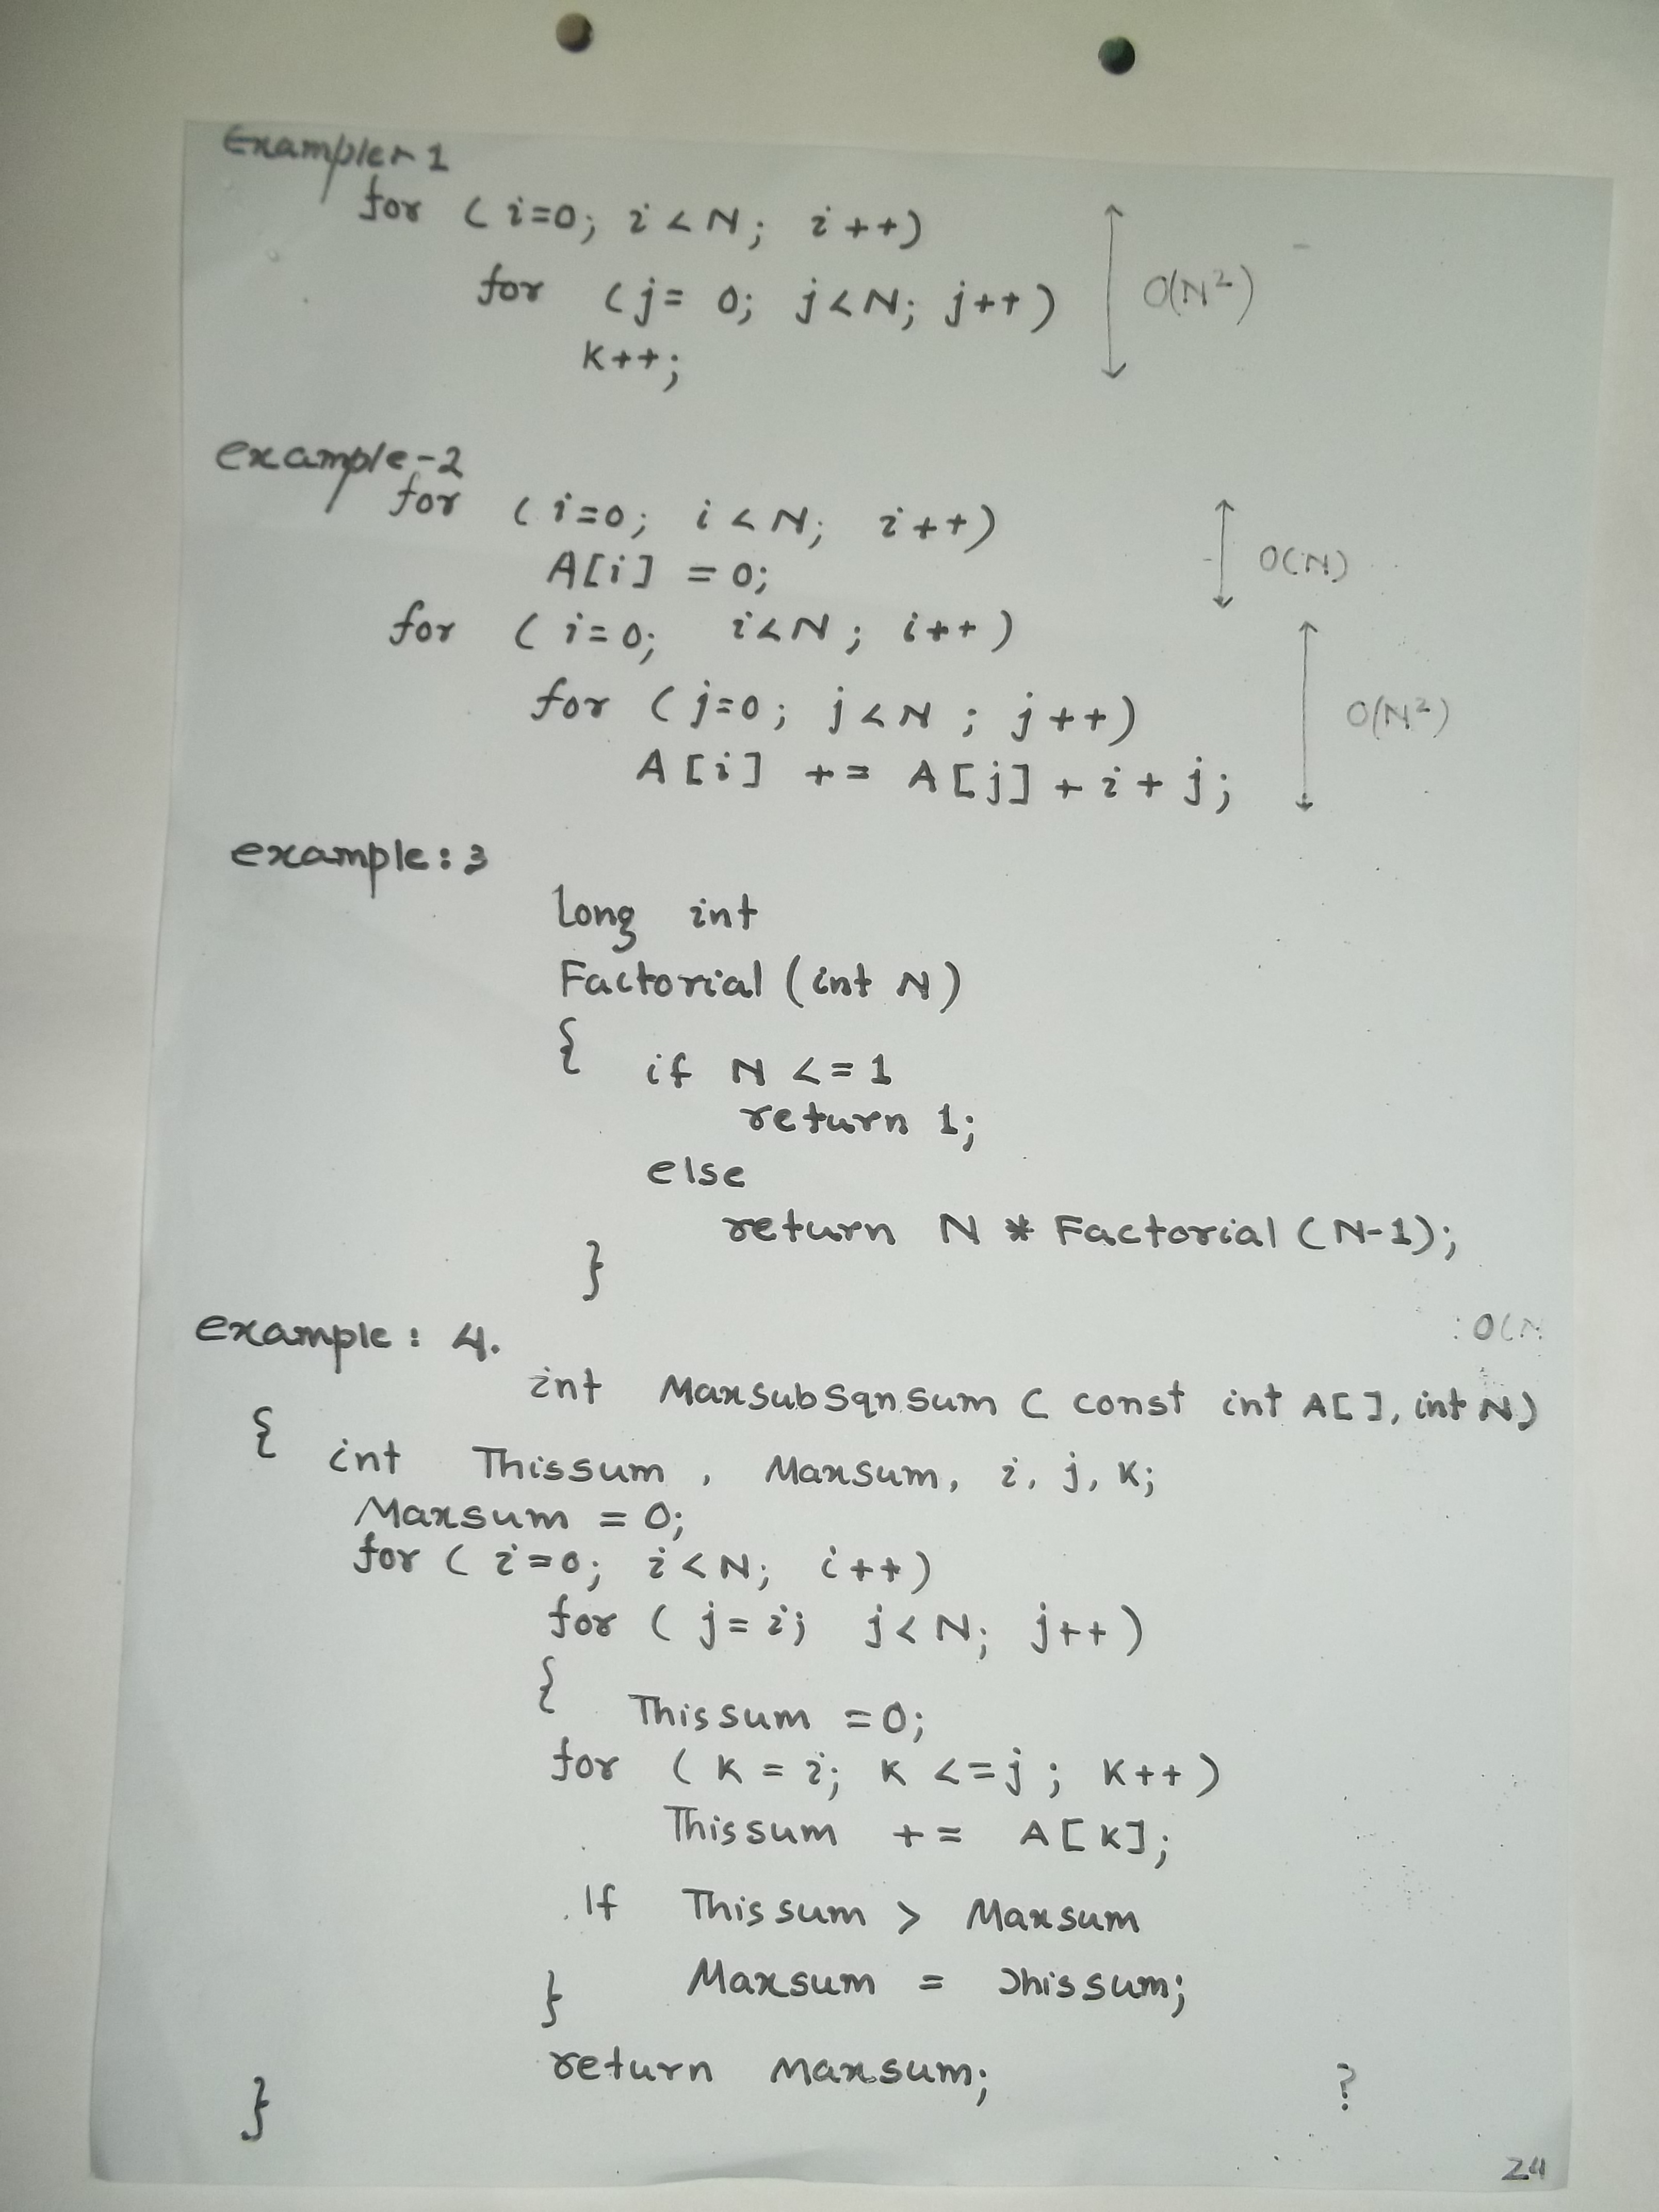 Example-1
for (i=0; i<N; i++)
for (j= 0; j<N; j++)
O(N²)
K++;
example-2
for (i=0; i<N; i++)
A[i] = 0;
O(N)
for (i=0; i<N; i++)
for (j=0; j<N; j++)
O(N²)
A[i] += A[j]+i+j;
example:3
Long int
Factorial (int N)
{
if N <=1
return 1;
else
return N * Factorial (N-1);
}
: O(N
example: 4.
int MaxsubSqnsum ( const int A[], int N)
{ int Thissum, Maxsum, i, j, K;
Maxsum = 0;
for (i=0; i<N; i++)
for (j=i; j<N; j++)
{ Thissum =0;
for (K=i; K <=j; K++)
Thissum += A[K];
If Thissum > Maxsum
} Maxsum = Thissum;
return Maxsum;
?
}
24